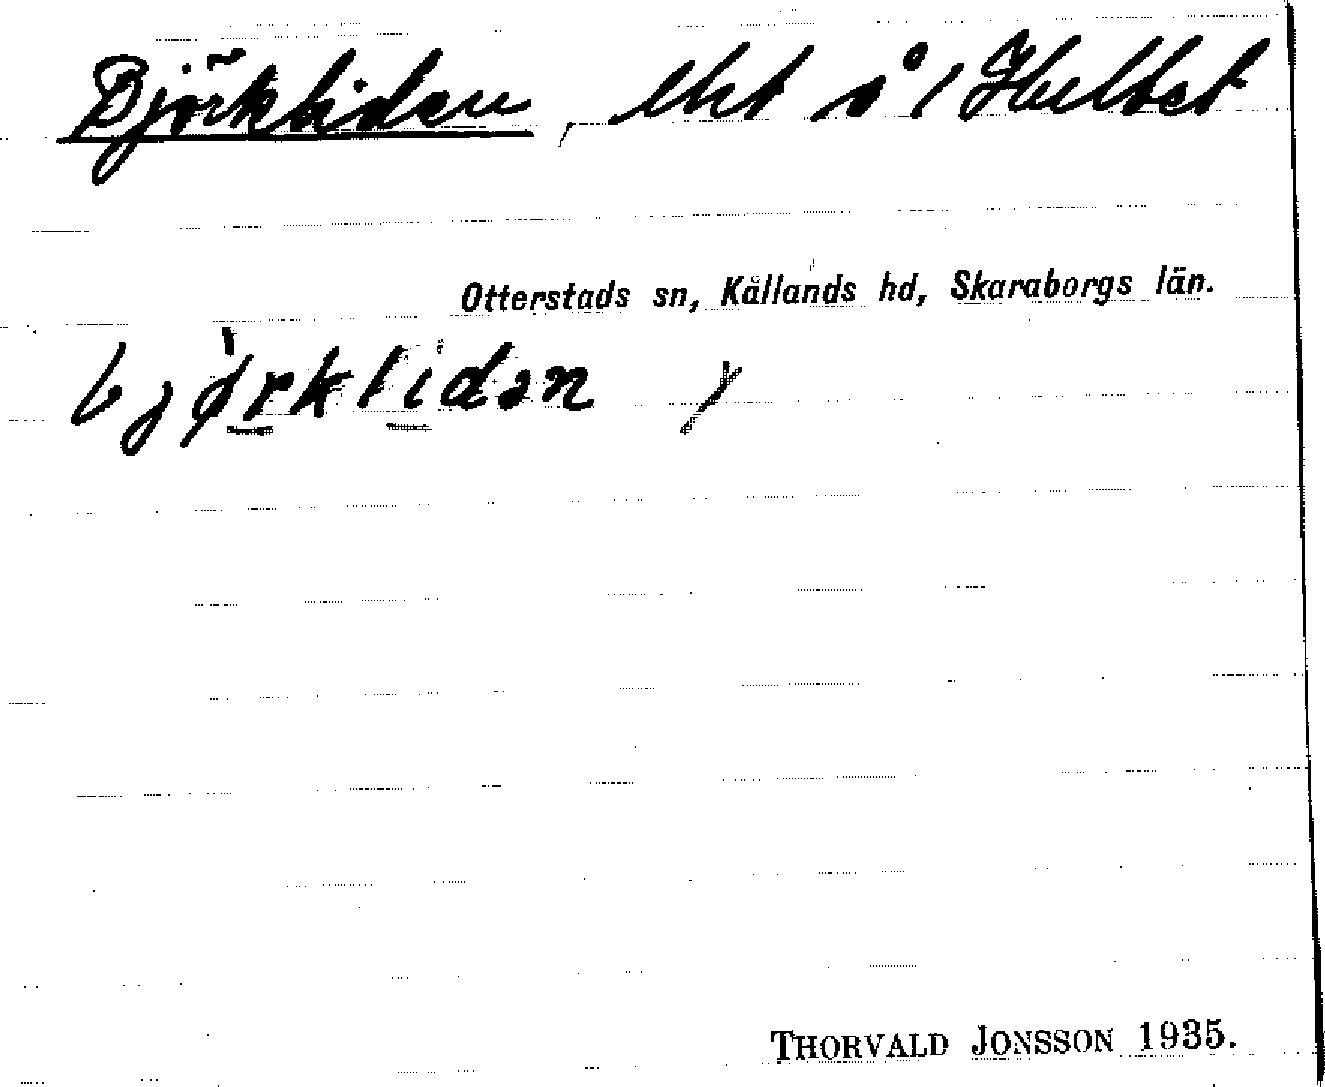 Björkliden, lht å 1 Hulbet
Otterstads sn, Kållands hd, Skaraborgs län.
bjǿrklidən
THORVALD JONSSON 1935.